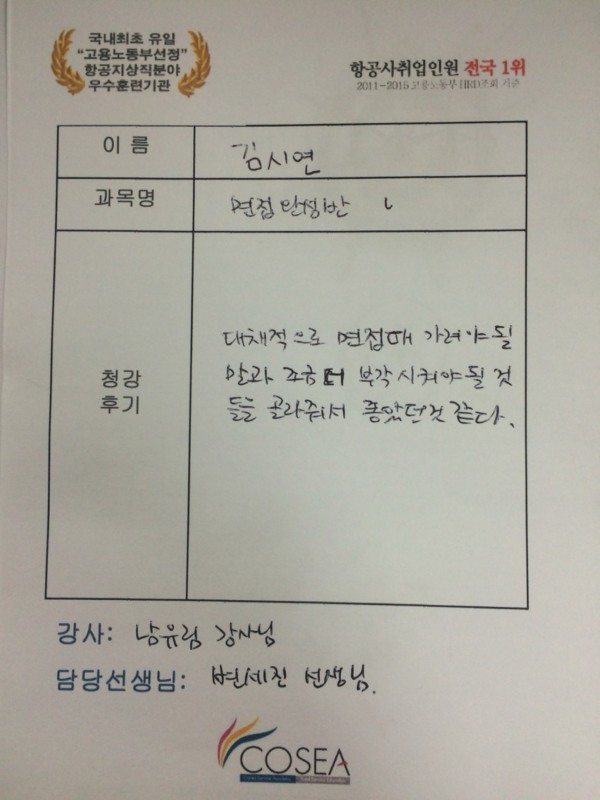 국내최초 유일
"고용노동부선정"
항공지상직분야
우수훈련기관
항공사취업인원 전국 1위
2011~2015 고용노동부 HRD조회 기준
이 름
김시연
과목명
면접완성반
청강
후기
대채적으로 면접때 가려야될
말과 조금 더 부각시켜야될 것
들을 골라줘서 좋았던것 같다.
강사: 남유림 강사님
담당선생님: 변세진 선생님.
COSEA